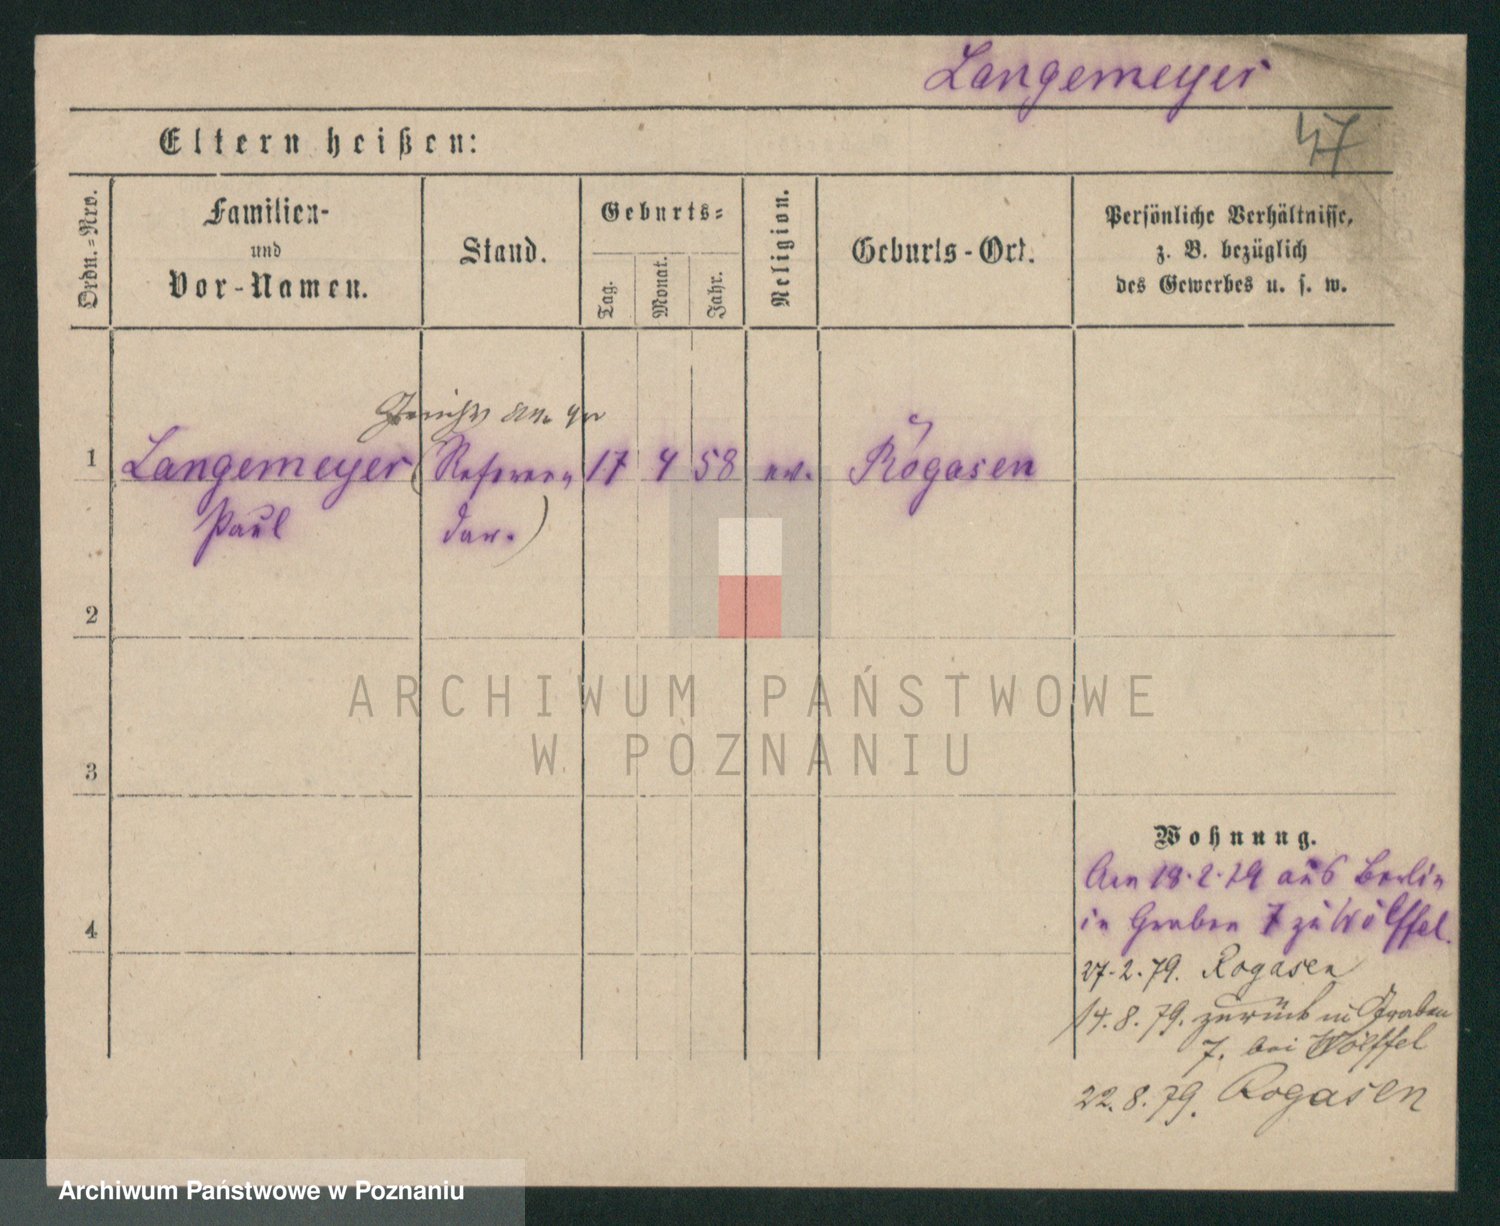 Langemeyer
47
Eltern heißen:
Ordn.-Nro.
Familien-
und
Vor-Namen.
Stand.
Geburts-
Tag.
Monat.
Jahr.
Religion.
Geburts-Ort.
Persönliche Verhältnisse,
z. B. bezüglich
des Gewerbes u. s. w.
1 Langemeyer (Referen 17 4 58 ev. Rogasen
Paul dar.)
2
ARCHIWUM PAŃSTWOWE
W POZNANIU
3
Wohnung.
Am 18.2.79 aus Berlin
in Graben 7 zu Wölffel.
4
27.2.79. Rogasen
14.8.79. zurück in Graben
7. bei Wölffel
22.8.79. Rogasen
Archiwum Państwowe w Poznaniu